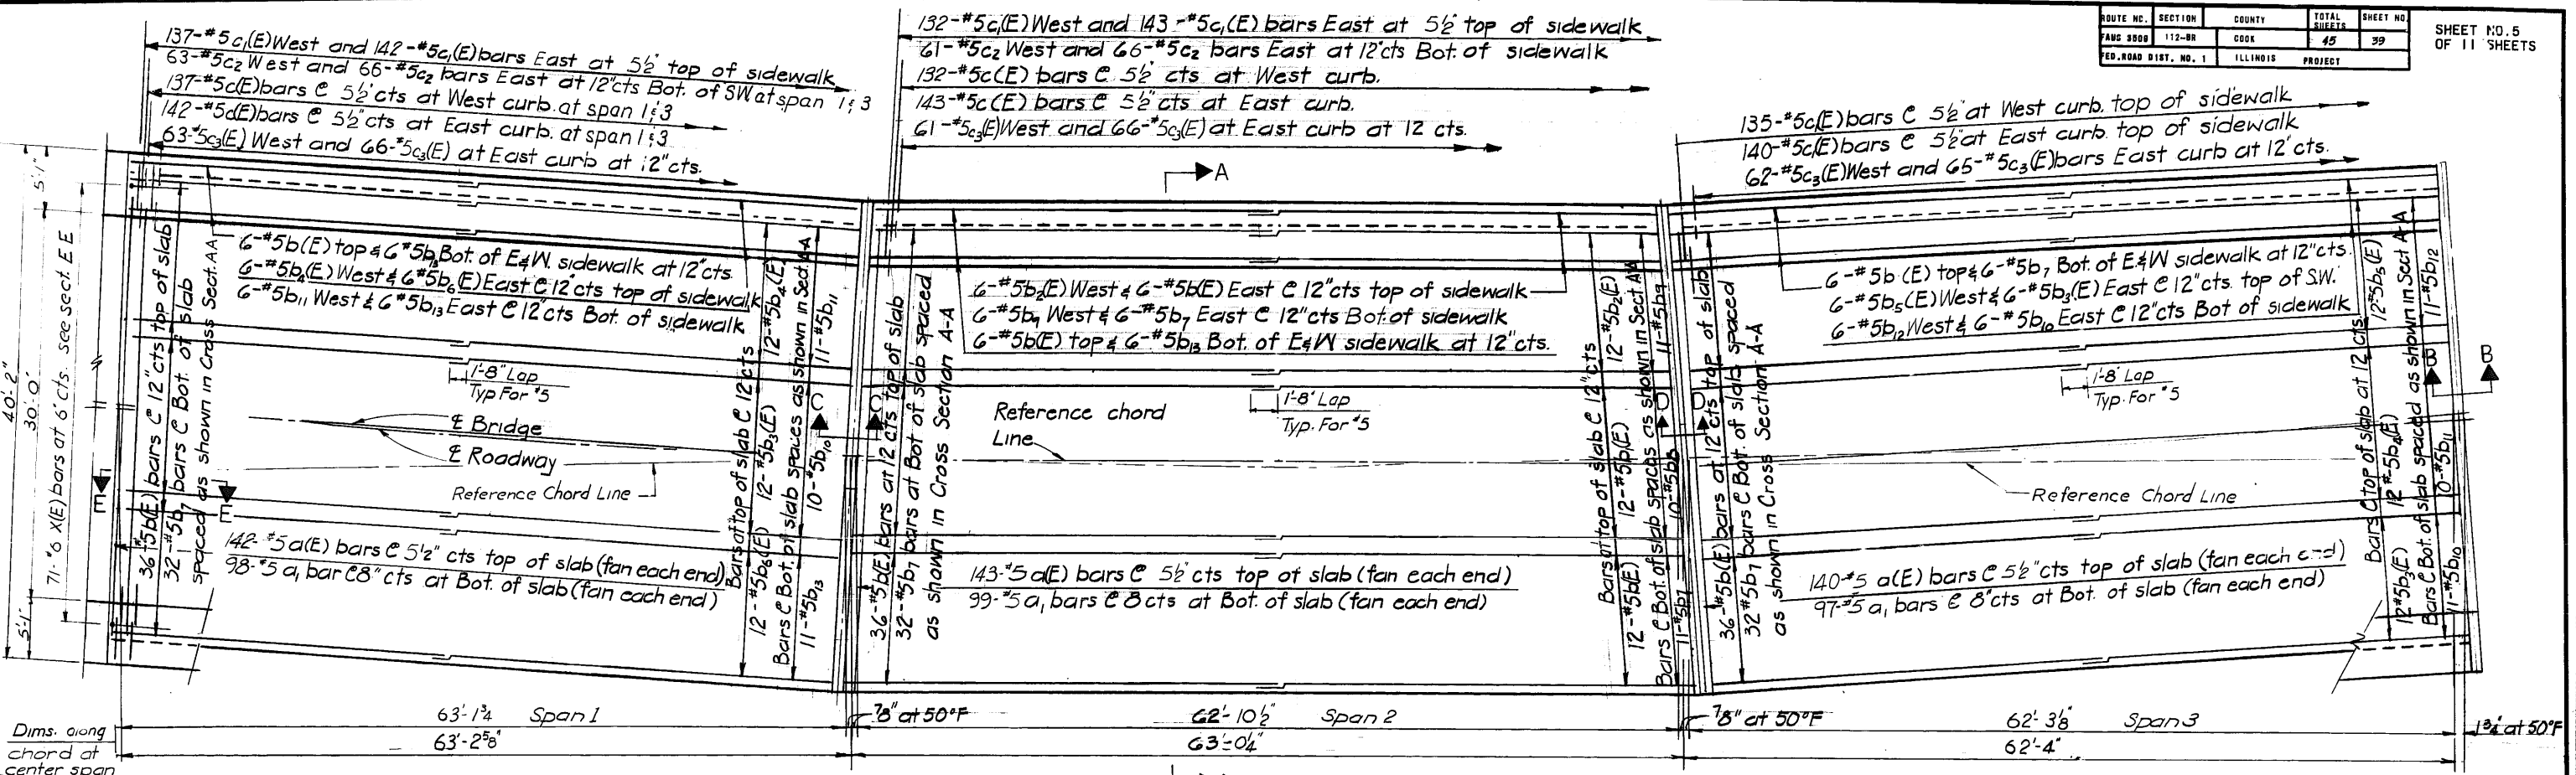 ROUTE NO. SECTION COUNTY TOTAL SHEETS SHEET NO.
FAUS 3509 112-BR COOK 45 39
FED. ROAD DIST. NO. 1 ILLINOIS PROJECT
SHEET NO. 5
OF 11 SHEETS
137-#5c₁(E) West and 142-#5c₁(E) bars East at 5½" top of sidewalk
63-#5c₂ West and 66-#5c₂ bars East at 12"cts Bot. of SW at span 1 & 3
137-#5c(E) bars @ 5½"cts at West curb. at span 1 & 3
142-#5c(E) bars @ 5½"cts at East curb. at span 1 & 3
63-#5c₃(E) West and 66-#5c₃(E) at East curb at 12"cts.
132-#5c₁(E) West and 143-#5c₁(E) bars East at 5½" top of sidewalk
61-#5c₂ West and 66-#5c₂ bars East at 12"cts Bot. of sidewalk
132-#5c(E) bars @ 5½" cts at West curb.
143-#5c(E) bars @ 5½"cts at East curb.
61-#5c₃(E) West and 66-#5c₃(E) at East curb at 12 cts.
135-#5c(E) bars @ 5½" at West curb. top of sidewalk
140-#5c(E) bars @ 5½" at East curb. top of sidewalk
62-#5c₃(E) West and 65-#5c₃(E) bars East curb at 12"cts.
A
5'-1"
40'-2"
30'-0"
5'-1"
71-#6 X(E) bars at 6"cts. see sect. E E
36-#5b(E) bars @ 12"cts top of slab
32-#5b₇ bars @ Bot. of slab
spaced as shown in Cross Sect. AA
6-#5b(E) top & 6#5b₁₃ Bot. of E&W. sidewalk at 12"cts.
6-#5b₄(E) West & 6#5b₆(E) East @ 12"cts top of sidewalk
6-#5b₁₁ West & 6#5b₁₃ East @ 12"cts Bot. of sidewalk
1'-8" Lap
Typ For #5
℄ Bridge
℄ Roadway
Reference Chord Line
E
E
142-#5a(E) bars @ 5½" cts top of slab (fan each end)
98-#5a₁ bar @ 8" cts at Bot. of slab (fan each end)
Bars at top of slab @ 12"cts
12-#5b₆(E) 12-#5b₃(E) 12-#5b₄(E)
Bars @ Bot. of slab spaces as shown in Sect. A-A
11-#5b₁₃ 10-#5b₁₀ 11-#5b₁₁
C
C
36-#5b(E) bars at 12"cts top of slab
32-#5b₇ bars at Bot of slab spaced
as shown in Cross Section A-A
6-#5b₂(E) West & 6-#5b(E) East @ 12"cts top of sidewalk
6-#5b₉ West & 6-#5b₇ East @ 12"cts Bot of sidewalk
6-#5b(E) top & 6-#5b₁₃ Bot. of E&W sidewalk at 12"cts.
1'-8" Lap
Typ. For #5
Reference chord
Line
143-#5a(E) bars @ 5½"cts top of slab (fan each end)
99-#5a₁ bars @ 8 cts at Bot. of slab (fan each end)
Bars at top of slab @ 12"cts
12-#5b(E) 12-#5b(E) 12-#5b₂(E)
Bars @ Bot. of slab spaces as shown in Sect AA
11-#5b₇ 10-#5b₈ 11-#5b₉
D
D
36-#5b(E) bars at 12"cts top of slab
32#5b₇ bars @ Bot. of slab spaced
as shown in Cross Section A-A
6-#5b(E) top & 6-#5b₇ Bot. of E&W sidewalk at 12"cts.
6-#5b₅(E) West & 6-#5b₃(E) East @ 12"cts. top of S.W.
6-#5b₁₂ West & 6-#5b₁₀ East @ 12"cts Bot of sidewalk
1'-8" Lap
Typ. For #5
Reference Chord Line
140-#5a(E) bars @ 5½"cts top of slab (fan each end)
97-#5a₁ bars @ 8"cts at Bot. of slab (fan each end)
Bars @ top of slab at 12"cts.
12#5b₃(E) 12#5b₄(E) 12#5b₅(E)
Bars @ Bot. of slab spaced as shown in Sect A-A
11-#5b₁₀ 10-#5b₁₁ 11-#5b₁₂
B
B
63'-1¾ Span 1
7/8" at 50°F
62'-10½" Span 2
7/8" at 50°F
62'-3⅛" Span 3
1¾" at 50°F
Dims. along
chord at
center span
63'-2⅝"
63'-0¼"
62'-4"